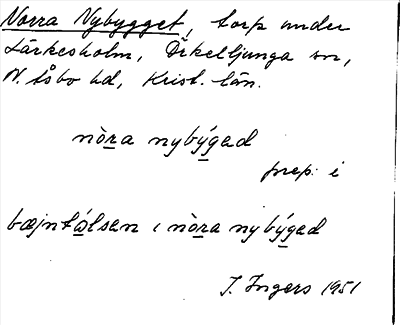 Norra Nybygget, torp under
Lärkesholm, Örkelljunga sn,
N. Åsbo hd, Krist. län.
nò̱ra nybý̱gad
prep. i
bæjntá̱lsen ı nò̱ra nybý̱gad
I. Ingers 1951